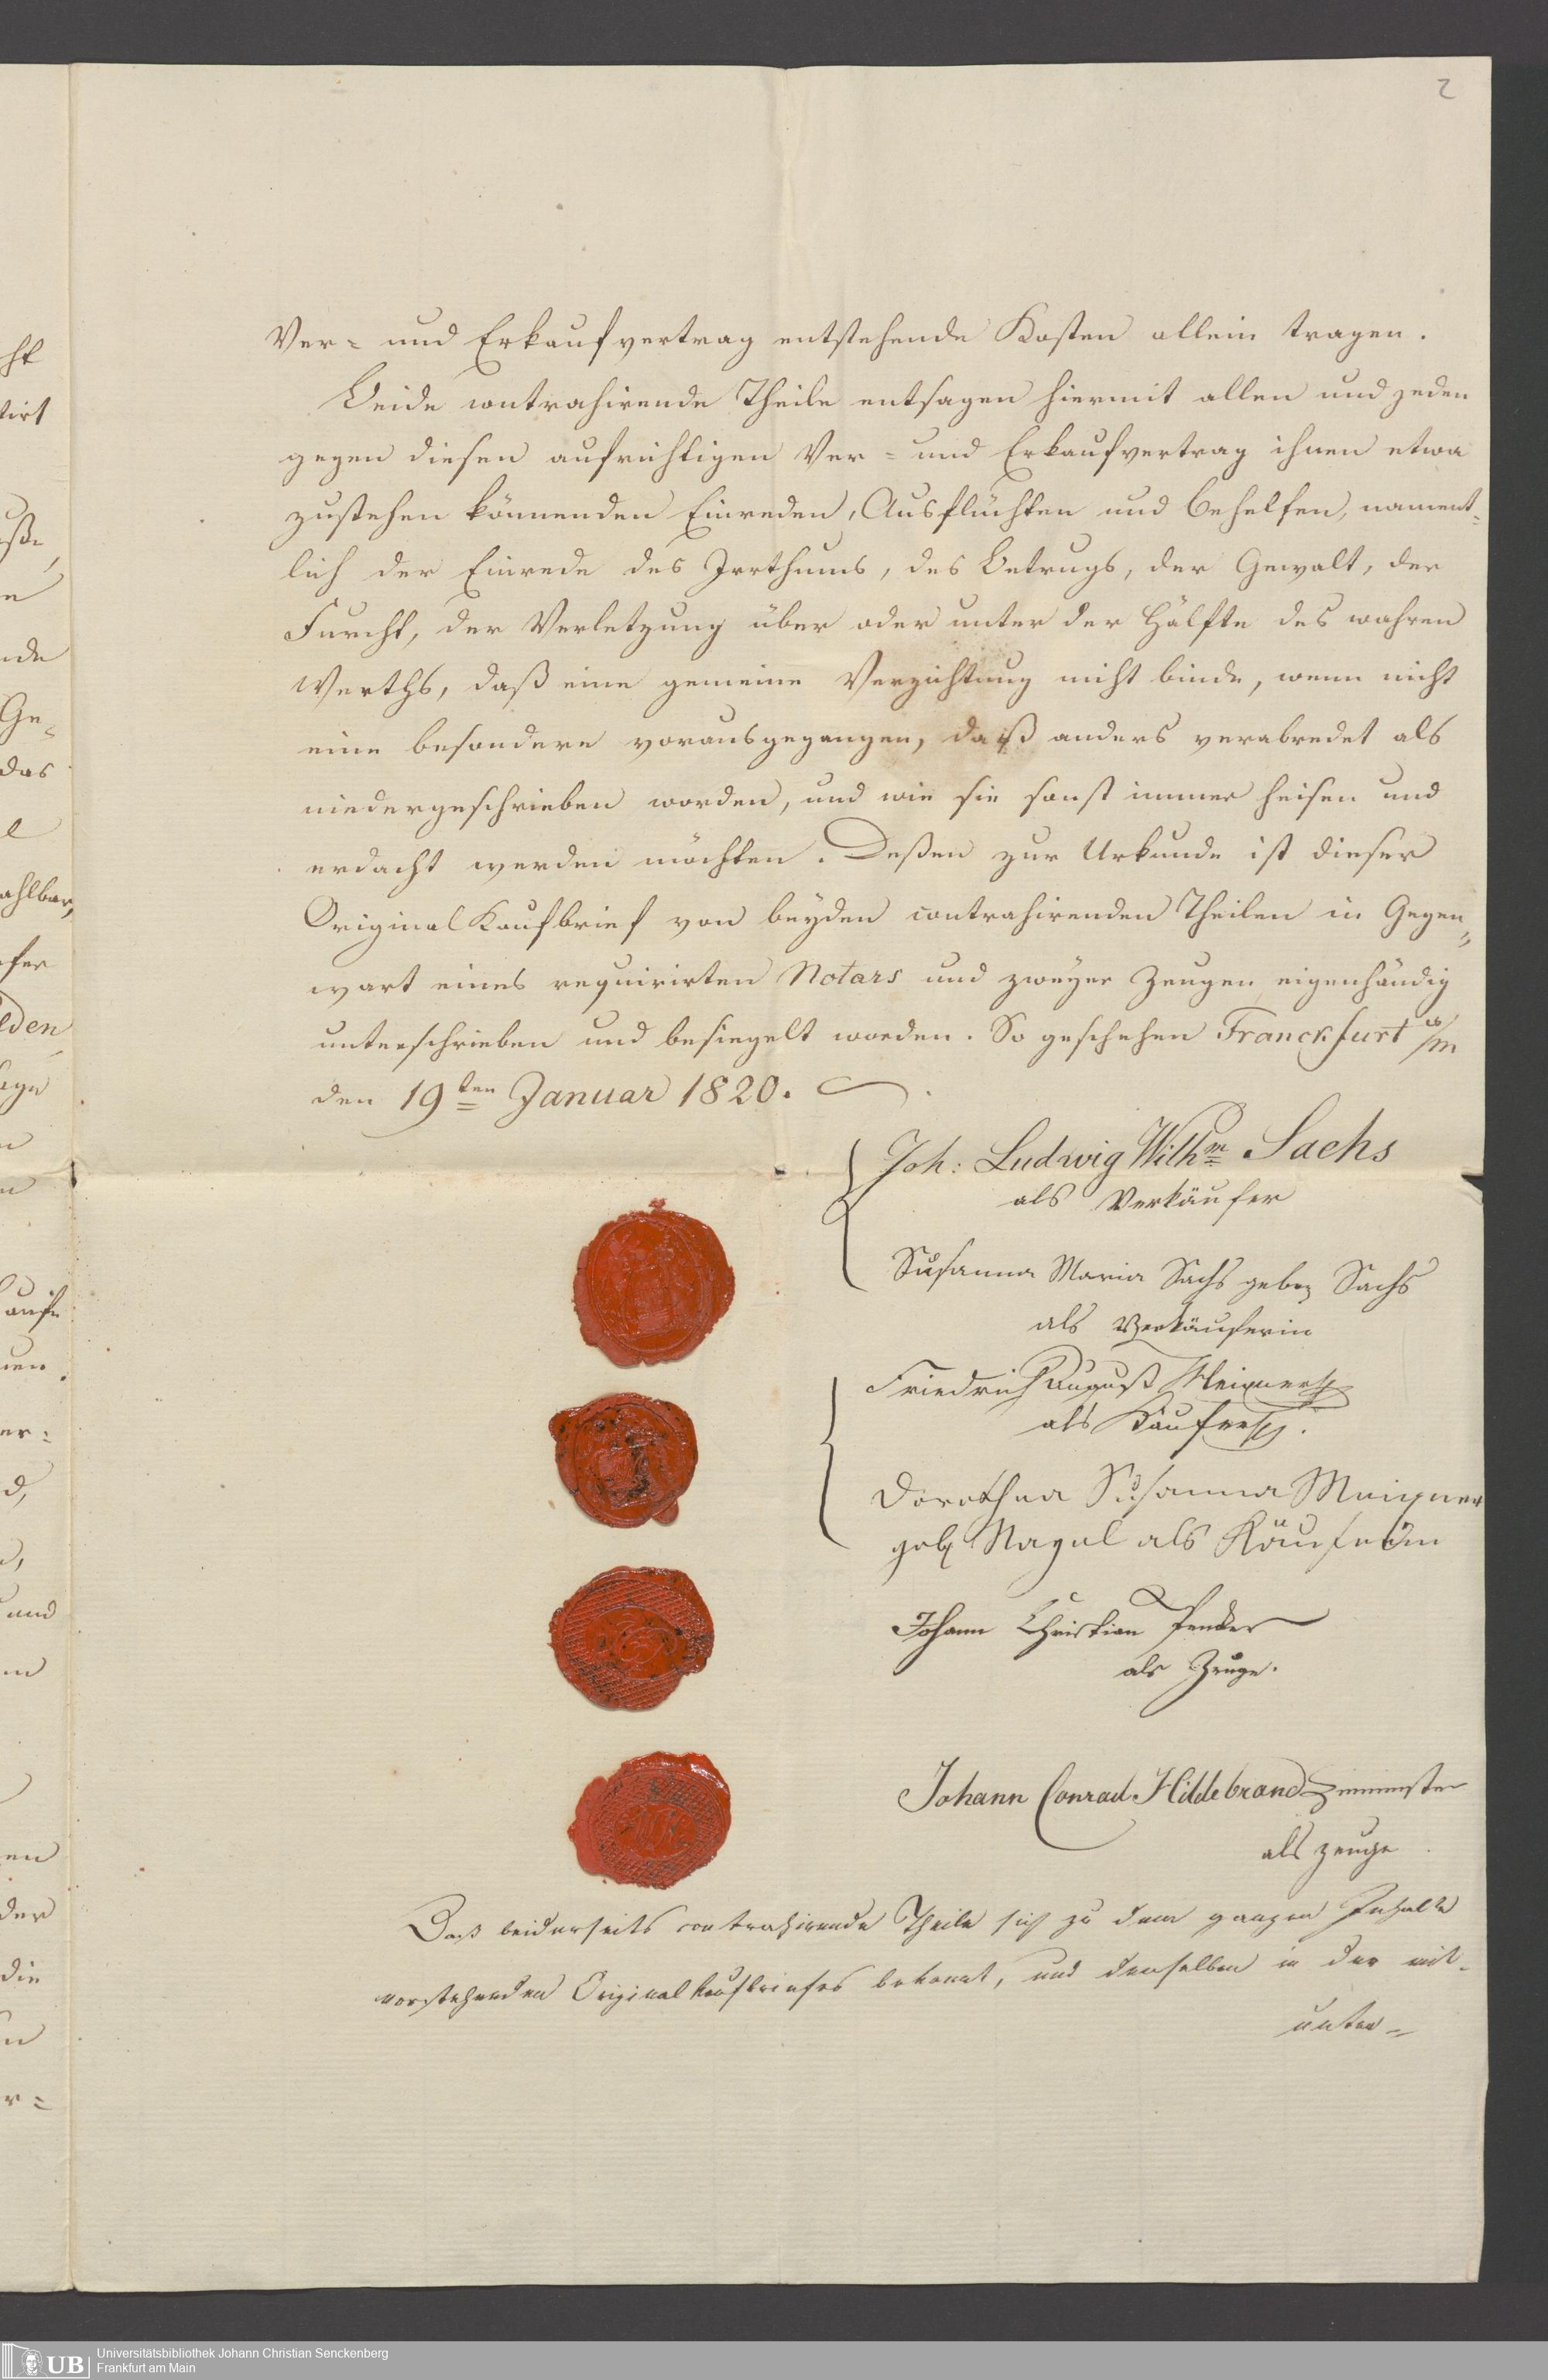 2
Ver- und Erkaufvertrag entstehende Kosten allein tragen.
Beide contrahirende Theile entsagen hiermit allen und jeden
gegen diesen aufrichtigen Ver- und Erkaufvertrag ihnen etwa
zustehen könnenden Einreden, Ausflüchten und Behelfen, nament-
lich der Einrede des Irrthums, des Betrugs, der Gewalt, der
Furcht, der Verletzung über oder unter der Hälfte des wahren
Werths, daß eine gemeine Verzichtung nicht binde, wenn nicht
eine besondere vorausgegangen, daß anders verabredet als
niedergeschrieben worden, und wie sie sonst immer heisen und
erdacht werden möchten. Deßen zur Urkunde ist dieser
Original Kaufbrief von beyden contrahirenden Theilen in Gegen-
wart eines requirirten Notars und zweyer Zeugen eigenhändig
unterschrieben und besiegelt worden. So geschehen Franckfurt a/m
den 19ten Januar 1820.
Joh: Ludwig Wilhm Sachs
als Verkäufer
Susanna Maria Sachs geb. Sachs
als Verkäuferin
Friedrich August Meixner
als Käufer.
Dorothea Susanna Meixner
geb Nagel als Käuferin
Johann Christian
als Zeuge.
Johann Conrad Hildebrand
als Zeuge
Daß beiderseits contrahirende Theile sich zu dem ganzen Inhalte
vorstehenden Original Kaufbriefes bekannt, und denselben in der mit-
unter-
ht
tirt
ße
nde
Ge-
das
ahlbar,
fer
lden
er:
und
en
der
die
r=
UB Universitätsbibliothek Johann Christian Senckenberg
Frankfurt am Main